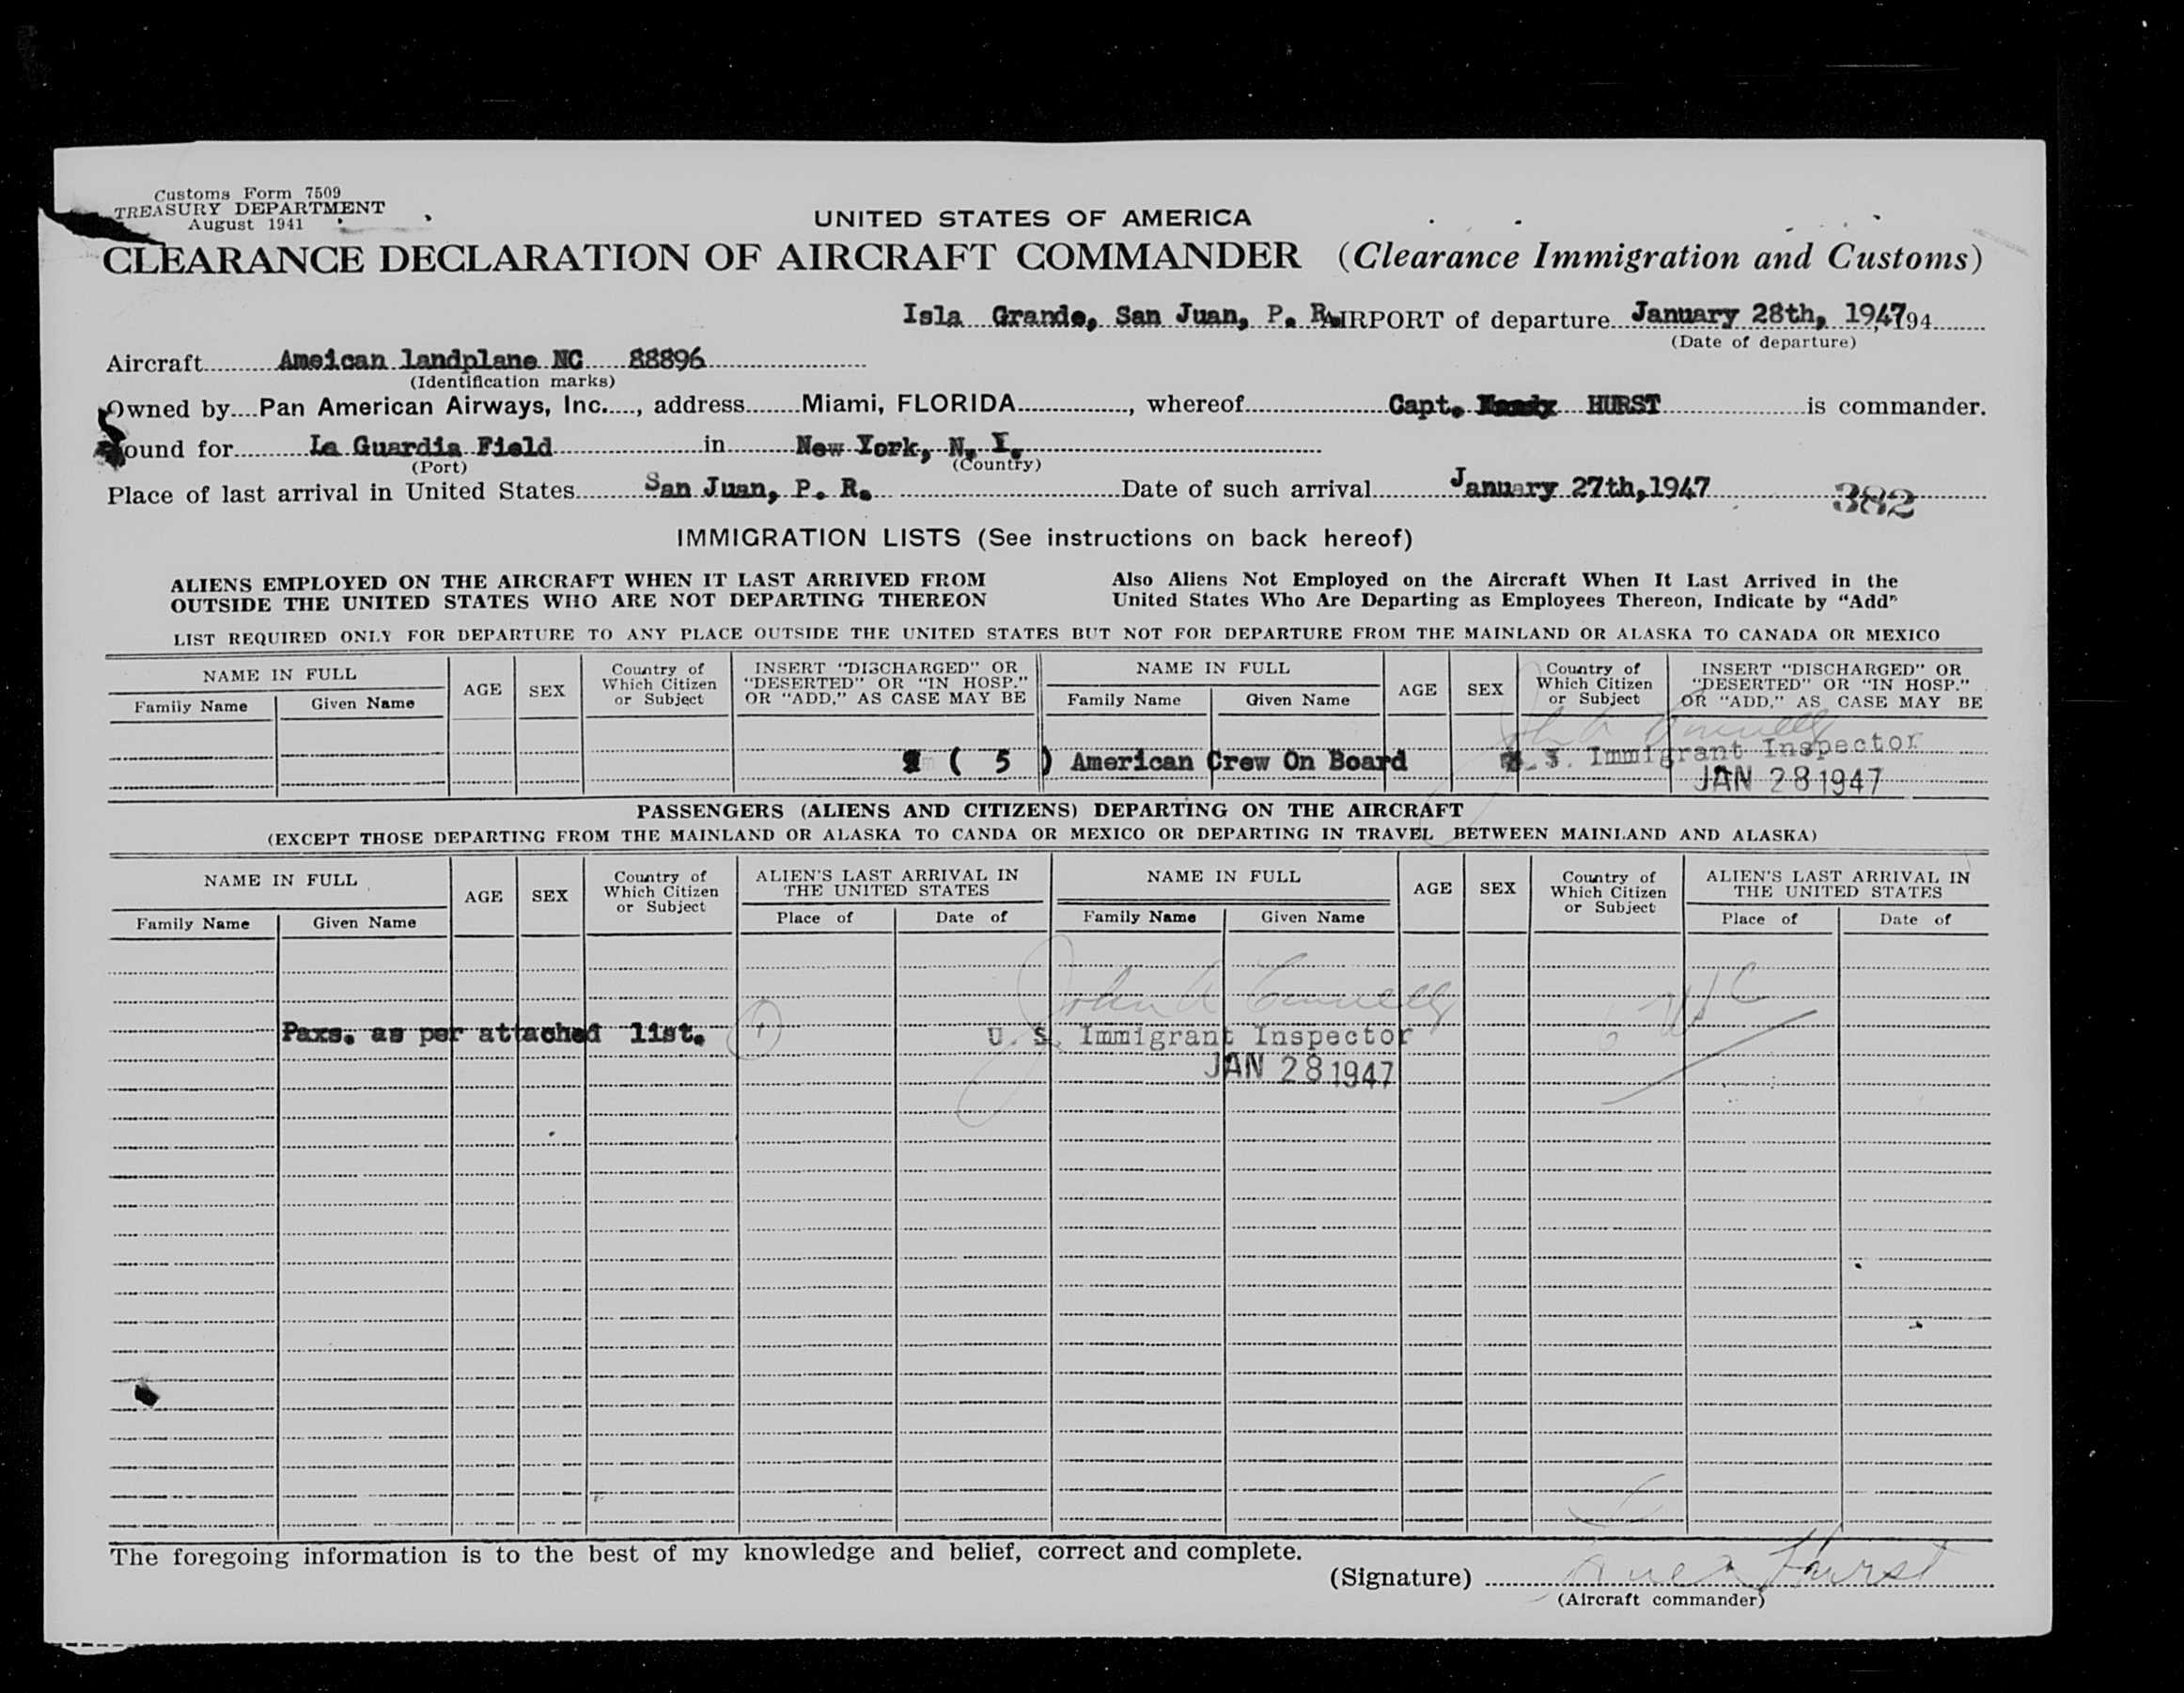 Customs Form 7509
TREASURY DEPARTMENT
August 1941
UNITED STATES OF AMERICA
CLEARANCE DECLARATION OF AIRCRAFT COMMANDER (Clearance Immigration and Customs)
Isla Grande, San Juan, P. R. AIRPORT of departure January 28th, 1947 194
(Date of departure)
Aircraft Ameican landplane NC 88896
(Identification marks)
Owned by Pan American Airways, Inc., address Miami, FLORIDA, whereof Capt. HURST is commander.
ound for La Guardia Field in New York, N. Y.
(Port) (Country)
Place of last arrival in United States San Juan, P. R. Date of such arrival January 27th, 1947 382
IMMIGRATION LISTS (See instructions on back hereof)
ALIENS EMPLOYED ON THE AIRCRAFT WHEN IT LAST ARRIVED FROM
OUTSIDE THE UNITED STATES WHO ARE NOT DEPARTING THEREON
Also Aliens Not Employed on the Aircraft When It Last Arrived in the
United States Who Are Departing as Employees Thereon, Indicate by "Add"
LIST REQUIRED ONLY FOR DEPARTURE TO ANY PLACE OUTSIDE THE UNITED STATES BUT NOT FOR DEPARTURE FROM THE MAINLAND OR ALASKA TO CANADA OR MEXICO
NAME IN FULL
Family Name Given Name
AGE SEX
Country of
Which Citizen
or Subject
INSERT "DISCHARGED" OR
"DESERTED" OR "IN HOSP."
OR "ADD," AS CASE MAY BE
NAME IN FULL
Family Name Given Name
AGE SEX
Country of
Which Citizen
or Subject
INSERT "DISCHARGED" OR
"DESERTED" OR "IN HOSP."
OR "ADD," AS CASE MAY BE
( 5 ) American Crew On Board
S. Immigrant Inspector
JAN 28 1947
PASSENGERS (ALIENS AND CITIZENS) DEPARTING ON THE AIRCRAFT
(EXCEPT THOSE DEPARTING FROM THE MAINLAND OR ALASKA TO CANDA OR MEXICO OR DEPARTING IN TRAVEL BETWEEN MAINLAND AND ALASKA)
NAME IN FULL
Family Name Given Name
AGE SEX
Country of
Which Citizen
or Subject
ALIEN'S LAST ARRIVAL IN
THE UNITED STATES
Place of Date of
NAME IN FULL
Family Name Given Name
AGE SEX
Country of
Which Citizen
or Subject
ALIEN'S LAST ARRIVAL IN
THE UNITED STATES
Place of Date of
John A Connelly
Paxs. as per attached list.
U. S. Immigrant Inspector
JAN 28 1947
The foregoing information is to the best of my knowledge and belief, correct and complete.
(Signature) Hurst
(Aircraft commander)